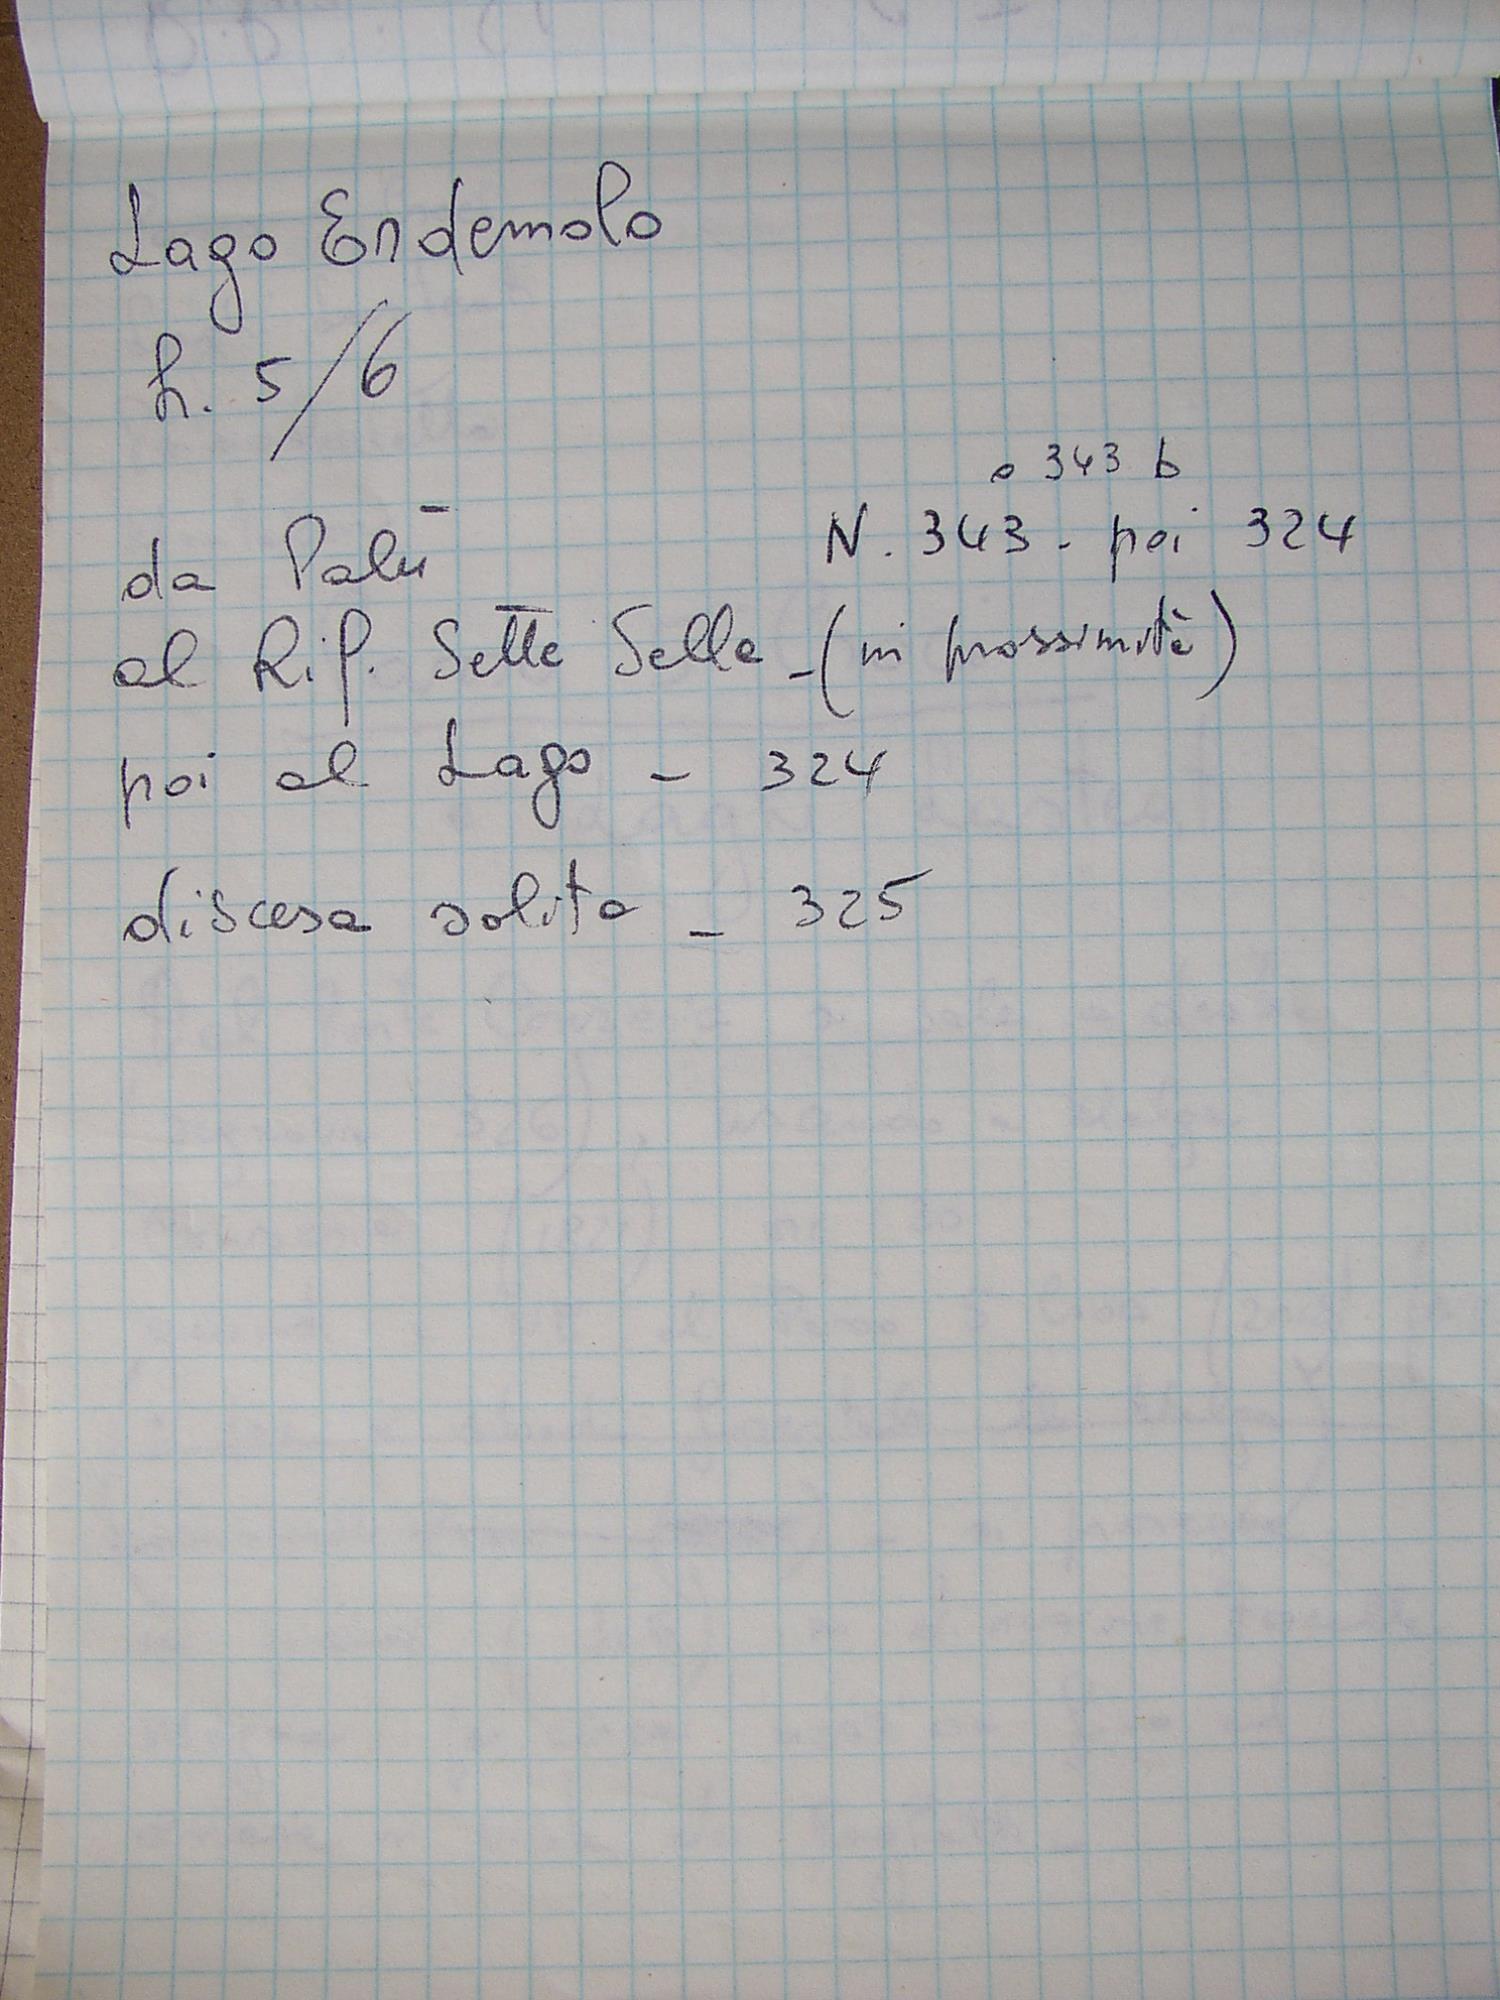 Lago Erdemolo
h. 5/6
o 343 b
da Palù N. 343 - poi 324
al Rif. Sette Selle - (in prossimità)
poi al Lago - 324
discesa solita - 325